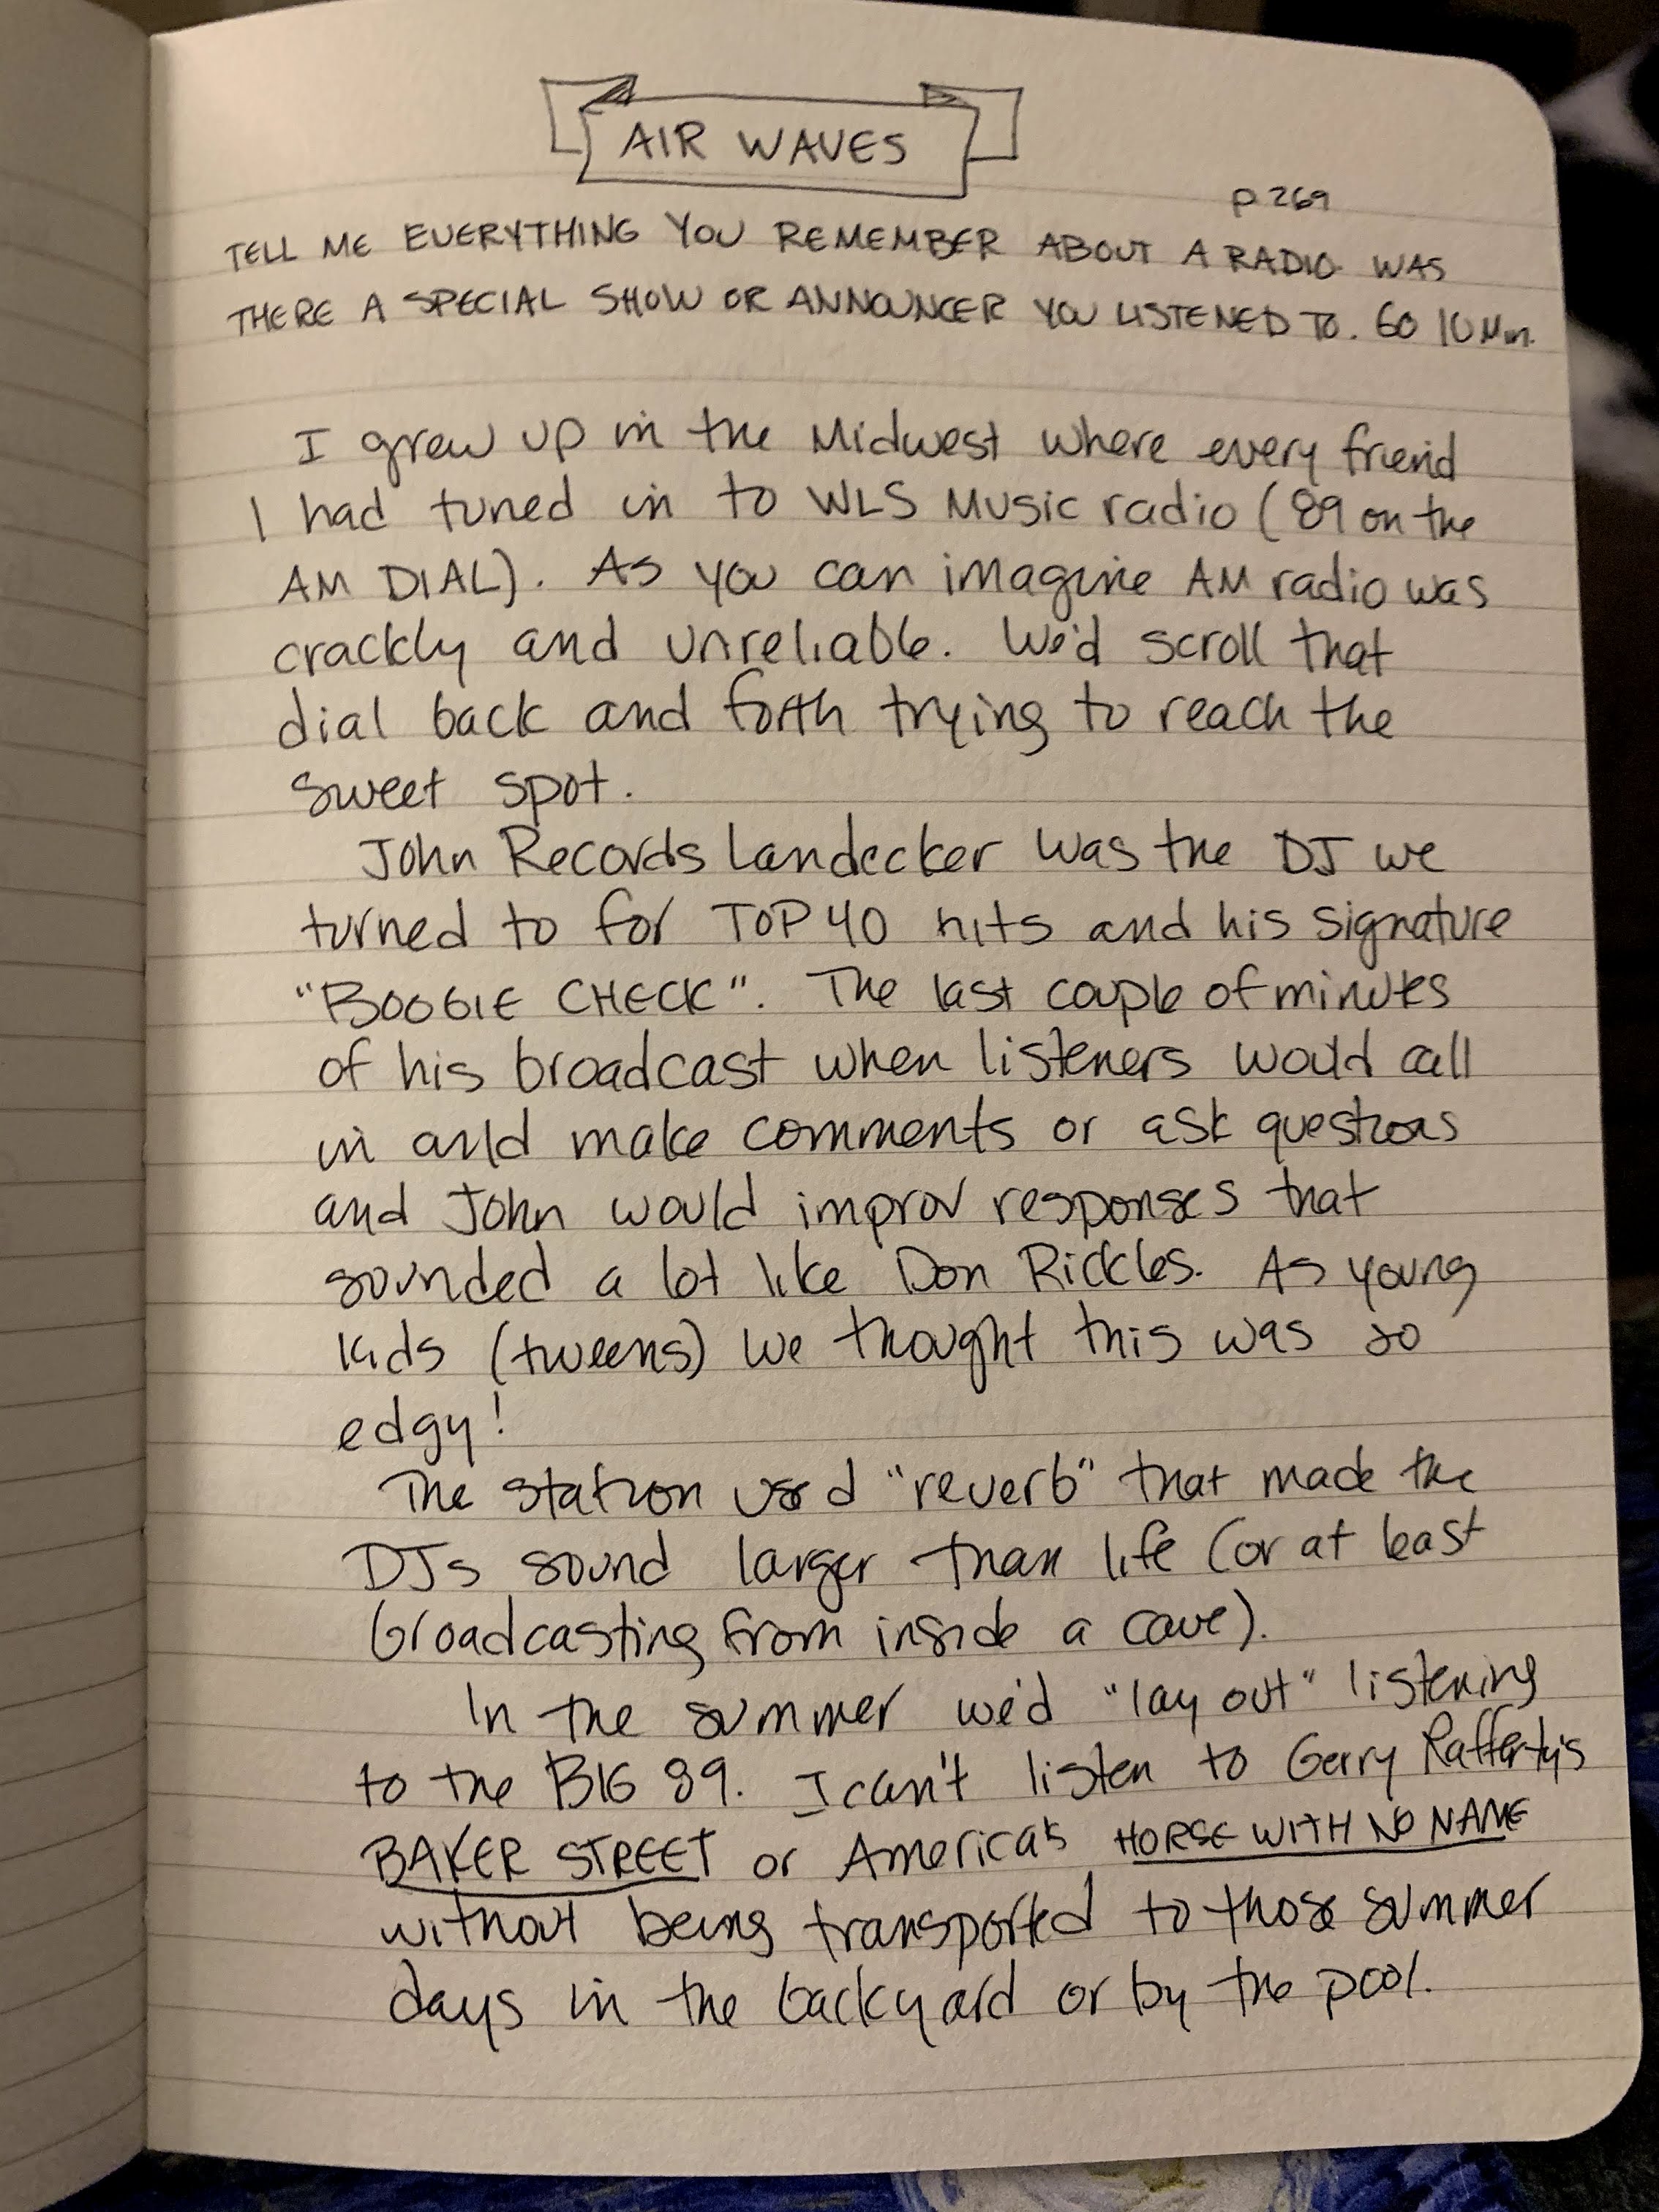 AIR WAVES
p 269
TELL ME EVERYTHING YOU REMEMBER ABOUT A RADIO. WAS
THERE A SPECIAL SHOW OR ANNOUNCER YOU LISTENED TO. GO 10 Min.
I grew up in the Midwest where every friend
I had tuned in to WLS Music radio (89 on the
AM DIAL). As you can imagine AM radio was
crackly and unreliable. We'd scroll that
dial back and forth trying to reach the
sweet spot.
John Records Landecker was the DJ we
turned to for TOP 40 hits and his signature
"BOOGIE CHECK". The last couple of minutes
of his broadcast when listeners would call
in and make comments or ask questions
and John would improv responses that
sounded a lot like Don Rickles. As young
kids (tweens) we thought this was so
edgy!
The station used "reverb" that made the
DJs sound larger than life (or at least
broadcasting from inside a cave).
In the summer we'd "lay out" listening
to the BIG 89. I can't listen to Gerry Rafferty's
BAKER STREET or America's HORSE WITH NO NAME
without being transported to those summer
days in the backyard or by the pool.